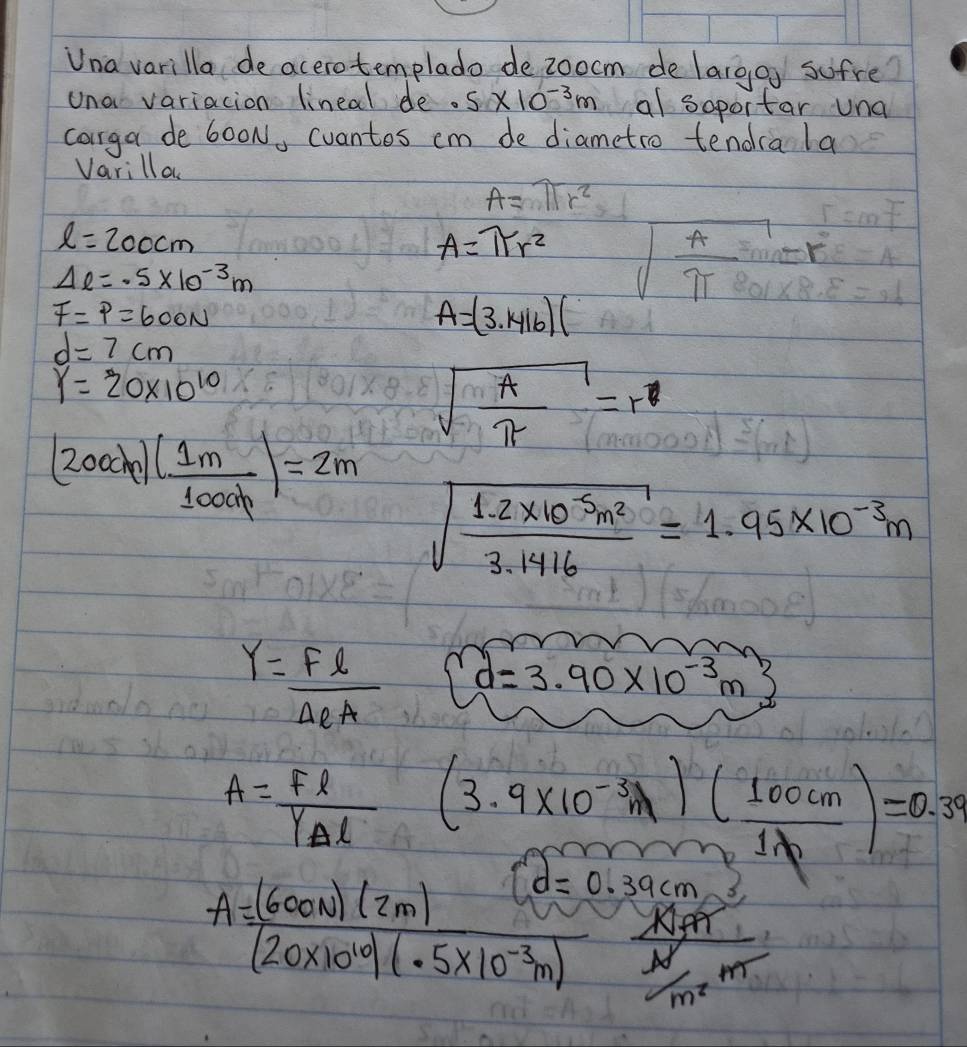 Una varilla de acero templado de 200cm de largo, sufre
una variacion lineal de .5 x 10⁻³m al soportar una
carga de 600N, cuantos cm de diametro tendra la
varilla.
A = πr²
l = 200cm
A = πr²
√(A/π) = r
Δl = .5 x 10⁻³m
F = P = 600N
A = (3.1416)(
d = ? cm
Y = 20x10¹⁰
√(A/π) = r
(200cm)(1m/100cm) = 2m
√(1.2 x 10⁻⁵m²/3.1416) = 1.95 x 10⁻³m
Y = Fl/ΔlA
d = 3.90 x 10⁻³m
A = Fl/YΔl
(3.9 x 10⁻³m)(100cm/1m) = 0.39
d = 0.39cm
A = (600N)(2m)/(20x10¹⁰)(.5x10⁻³m)
N·m/N/m² m